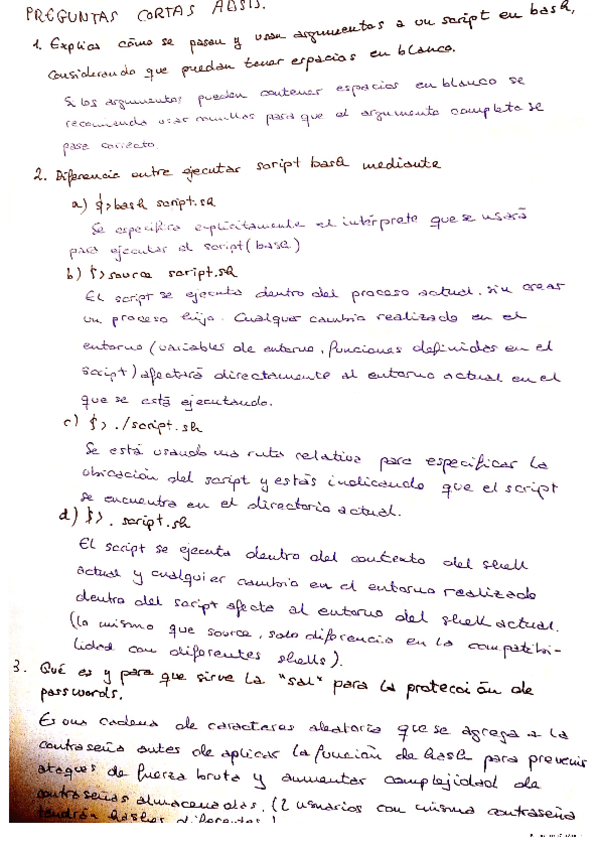 PREGUNTAS CORTAS ADSIS.
1. Explica cómo se pasan y usan argumentos a un script en bash,
considerando que puedan tener espacios en blanco.
Si los argumentos pueden contener espacios en blanco se
recomienda usar comillas para que el argumento completo se
pase correcto.
2. Diferencia entre ejecutar script bash mediante
a) $> bash script.sh
Se especifica explícitamente el intérprete que se usará
para ejecutar el script (base)
b) $> source script.sh
El script se ejecuta dentro del proceso actual, sin crear
un proceso hijo. Cualquier cambio realizado en el
entorno (variables de entorno, funciones definidas en el
script) afectará directamente al entorno actual en el
que se está ejecutando.
c) $> ./script.sh
Se está usando una ruta relativa para especificar la
ubicación del script y estás indicando que el script
se encuentra en el directorio actual.
d) $> . script.sh
El script se ejecuta dentro del contexto del shell
actual y cualquier cambio en el entorno realizado
dentro del script afecta al entorno del shell actual.
(lo mismo que source, solo diferencia en la compatibi-
lidad con diferentes shells).
3. Qué es y para que sirve la "sal" para la protección de
passwords.
Es una cadena de caracteres aleatoria que se agrega a la
contraseña antes de aplicar la función de hash para prevenir
ataques de fuerza bruta y aumentar complejidad de
contraseñas almacenadas. (2 usuarios con misma contraseña
tendrán hashes diferentes)